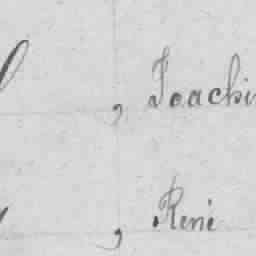 , Joachi
, René